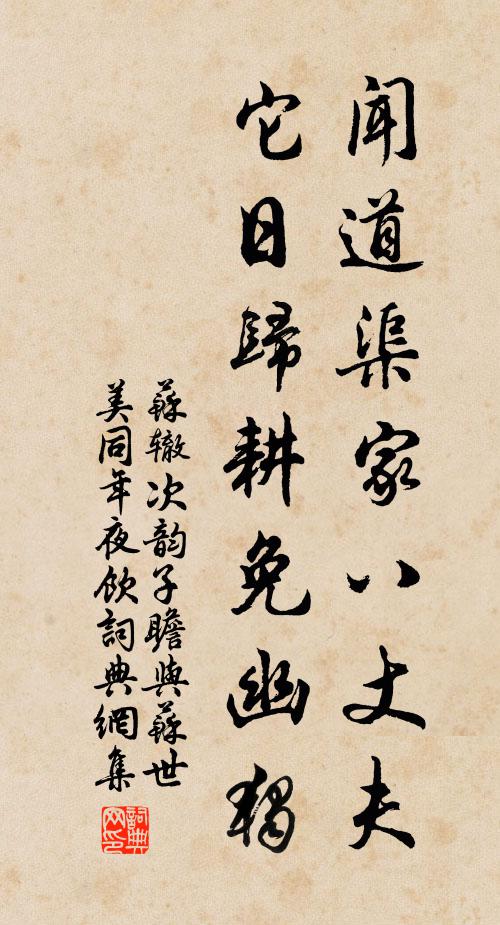 聞道渠家八丈夫
它日歸耕免幽獨
蘇辙次韵子瞻與蘇世
美同年夜飲詞典網集
詞典
网印